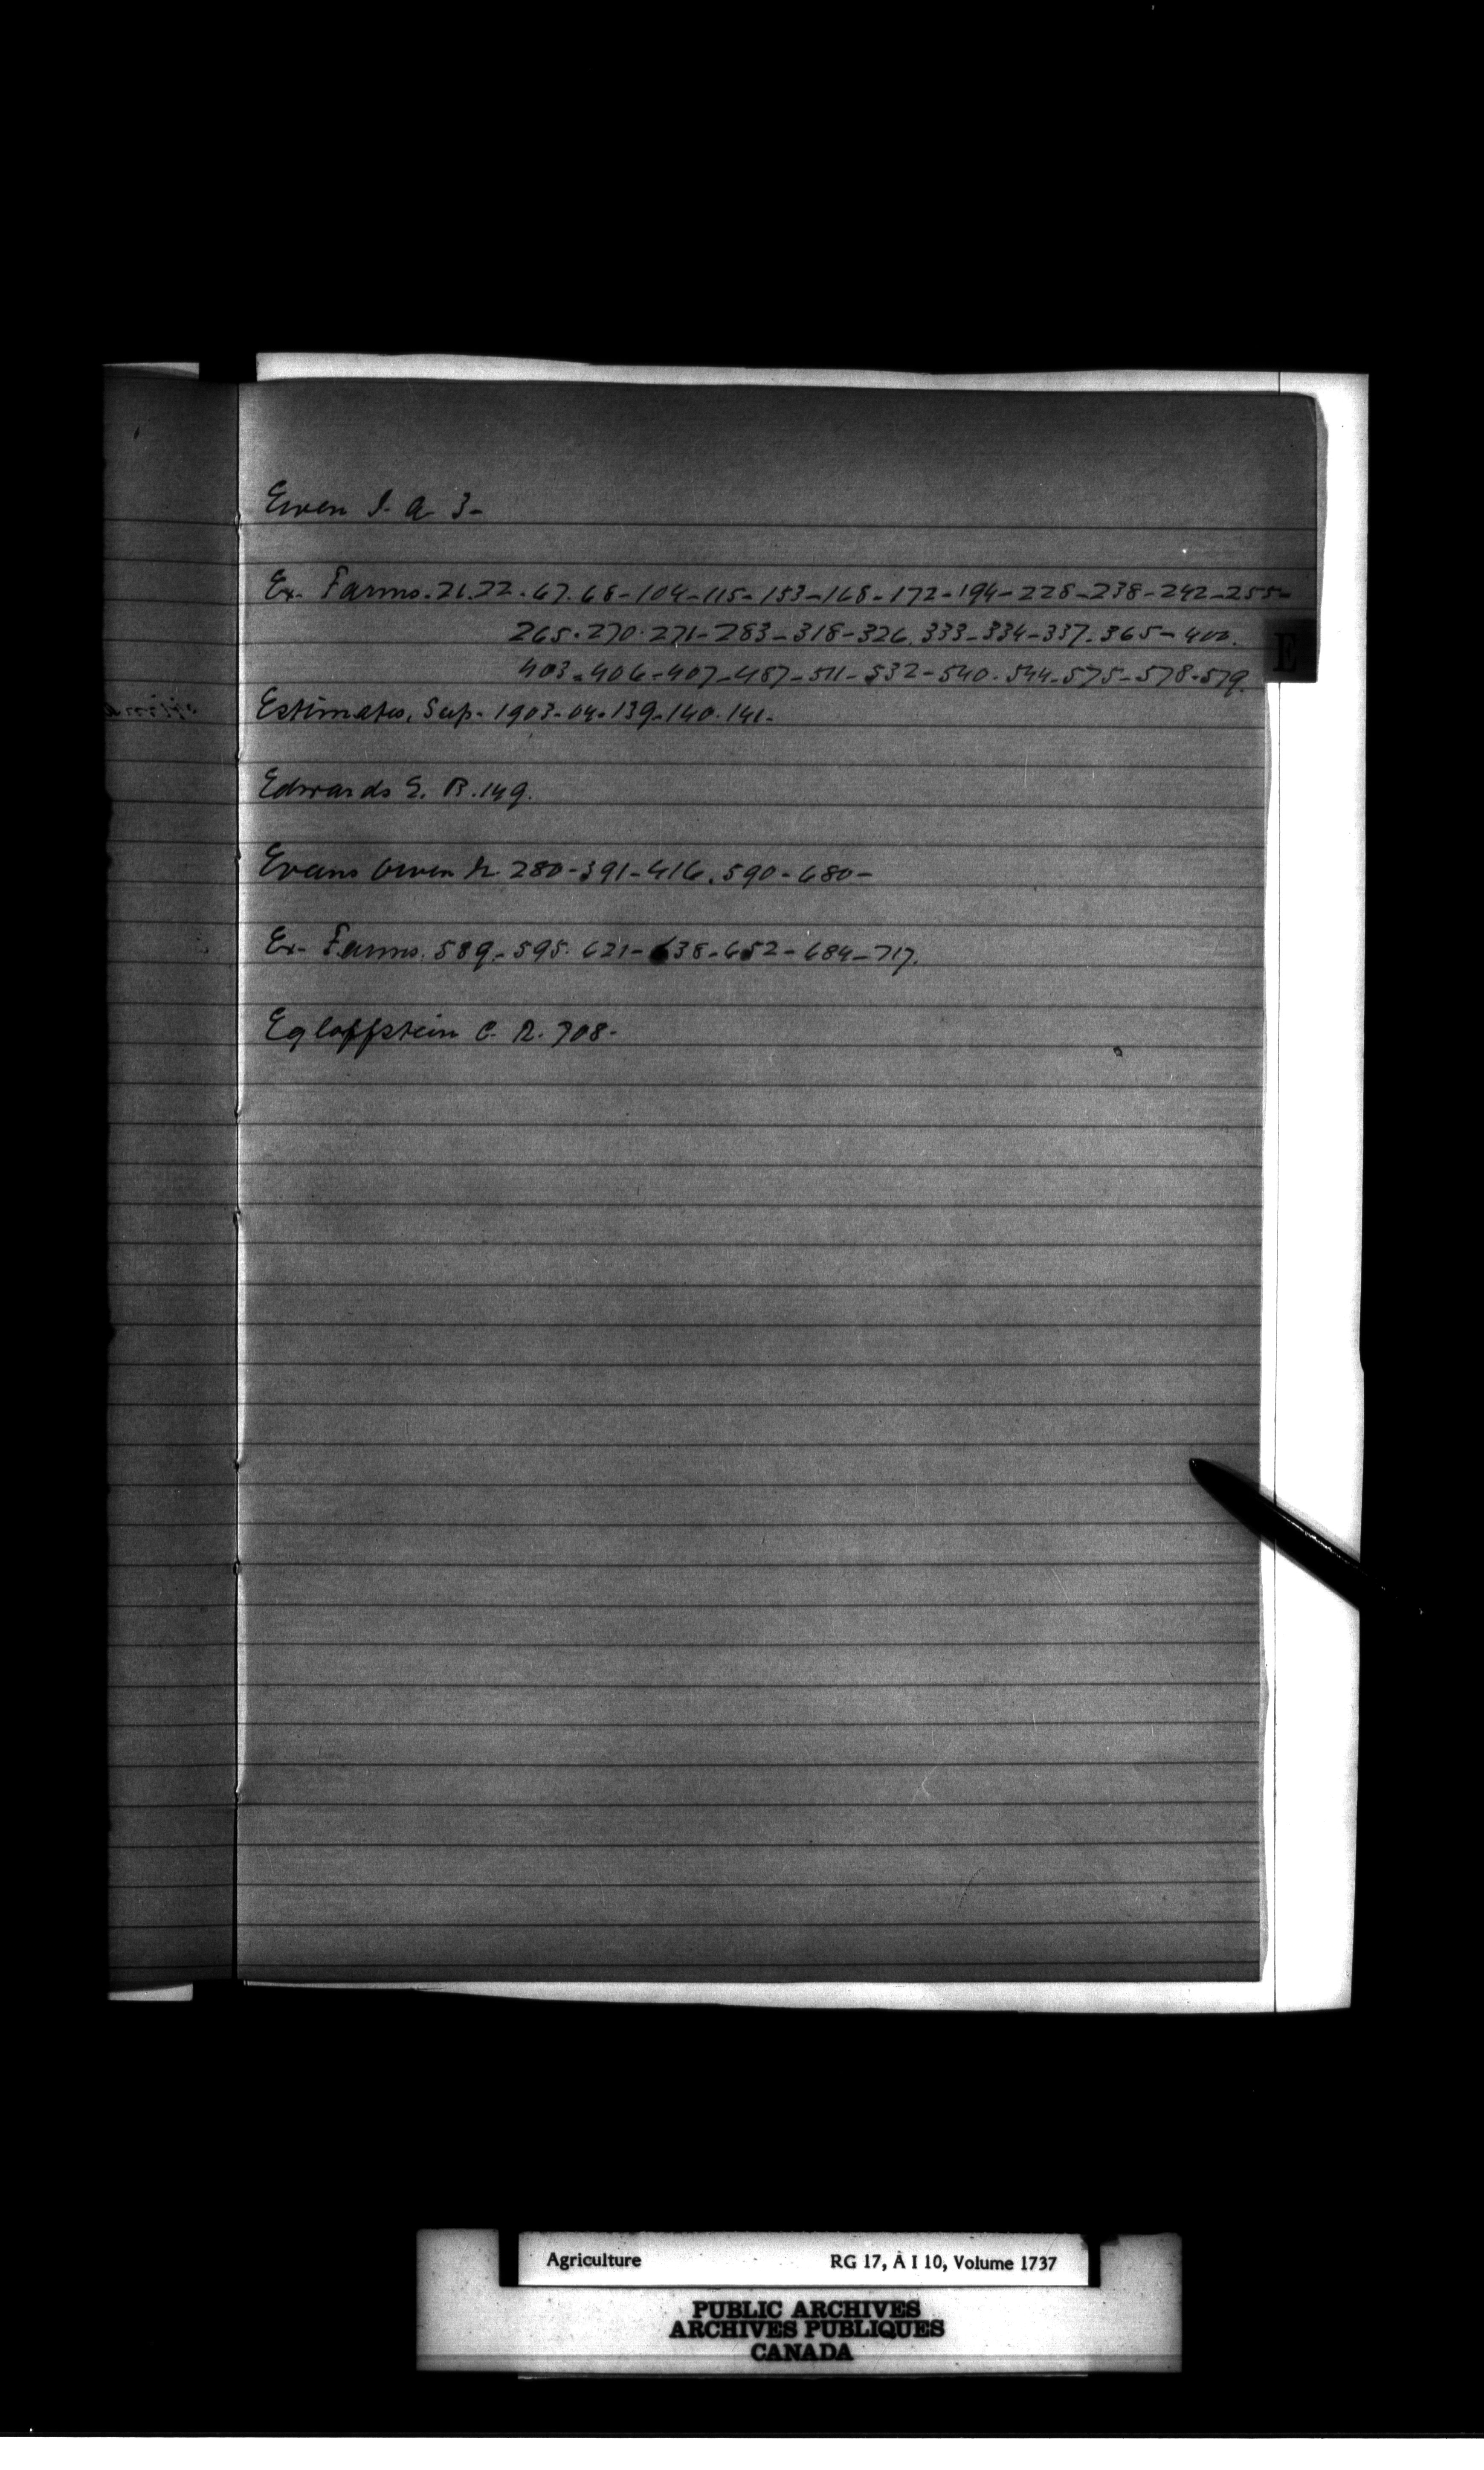 Ewen J. A. 3-
Ex- Farms. 21.22. 67. 68-104-115-153-168-172-194-228-238-242-255-
265. 270. 271-283-318-326. 333-334-337. 365-400.
E
403-406-407-487-511-532-540. 544-575-578-579.
Estimates, Sup. 1903-04. 139-140. 141-
Edwards E. B. 149.
Evans Owen 280-391-416. 590-680-
Ex- Farms. 589-595. 621-638-652-684-717.
Egloffstein C. R. 708-
Agriculture RG 17, A I 10, Volume 1737
PUBLIC ARCHIVES
ARCHIVES PUBLIQUES
CANADA